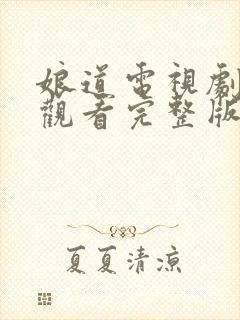 娘道電視劇
觀看完整版
夏夏清涼